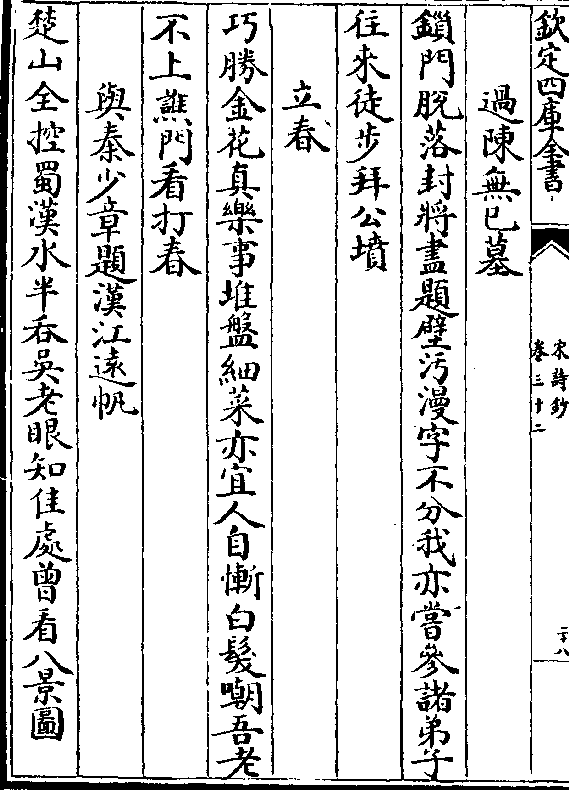 欽定四庫全書
宋詩鈔
卷三十二
二十八
過陳無已墓
鎖門脫落封將盡題壁汚漫字不分我亦嘗參諸弟子
往來徒步拜公墳
立春
巧勝金花真樂事堆盤細菜亦宜人自慚白髮嘲吾老
不上譙門看打春
與秦少章題漢江遠帆
楚山全控蜀漢水半吞吳老眼知佳處曾看八景圖